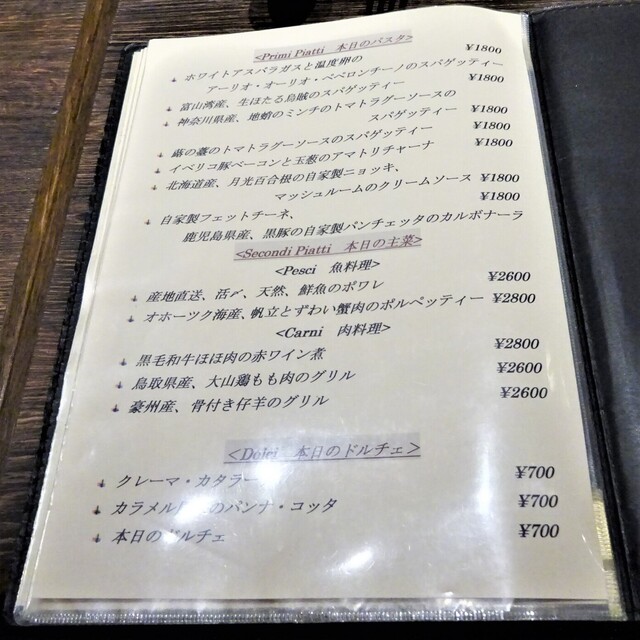 <Primi Piatti 本日のパスタ>
ホワイトアスパラガスと温度卵の ¥1800
アーリオ・オーリオ・ペペロンチーノのスパゲッティー
富山湾産、生ほたる烏賊のスパゲッティー ¥1800
神奈川県産、地蛸のミンチのトマトラグーソースの
スパゲッティー ¥1800
蕗の薹のトマトラグーソースのスパゲッティー ¥1800
イベリコ豚ベーコンと玉葱のアマトリチャーナ ¥1800
北海道産、月光百合根の自家製ニョッキ、
マッシュルームのクリームソース ¥1800
自家製フェットチーネ、 ¥1800
鹿児島県産、黒豚の自家製パンチェッタのカルボナーラ
<Secondi Piatti 本日の主菜>
<Pesci 魚料理>
産地直送、活〆、天然、鮮魚のポワレ ¥2600
オホーツク海産、帆立とずわい蟹肉のポルペッティー ¥2800
<Carni 肉料理>
黒毛和牛ほほ肉の赤ワイン煮 ¥2800
鳥取県産、大山鶏もも肉のグリル ¥2600
豪州産、骨付き仔羊のグリル ¥2600
<Dolci 本日のドルチェ>
クレーマ・カタラー ¥700
カラメル のパンナ・コッタ ¥700
本日のドルチェ ¥700